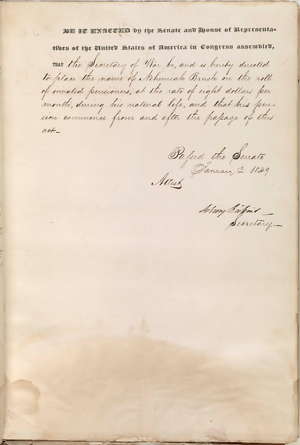 BE IT ENACTED by the Senate and House of Representa-
tives of the United States of America in Congress assembled,
THAT the Secretary of War be, and is hereby directed
to place the name of Nehemiah Brush on the roll
of invalid pensioners, at the rate of eight dollars per
month, during his natural life, and that his pen-
sion commence from and after the passage of this
act.
Passed the Senate
January 2 1849
Attest,
Secretary